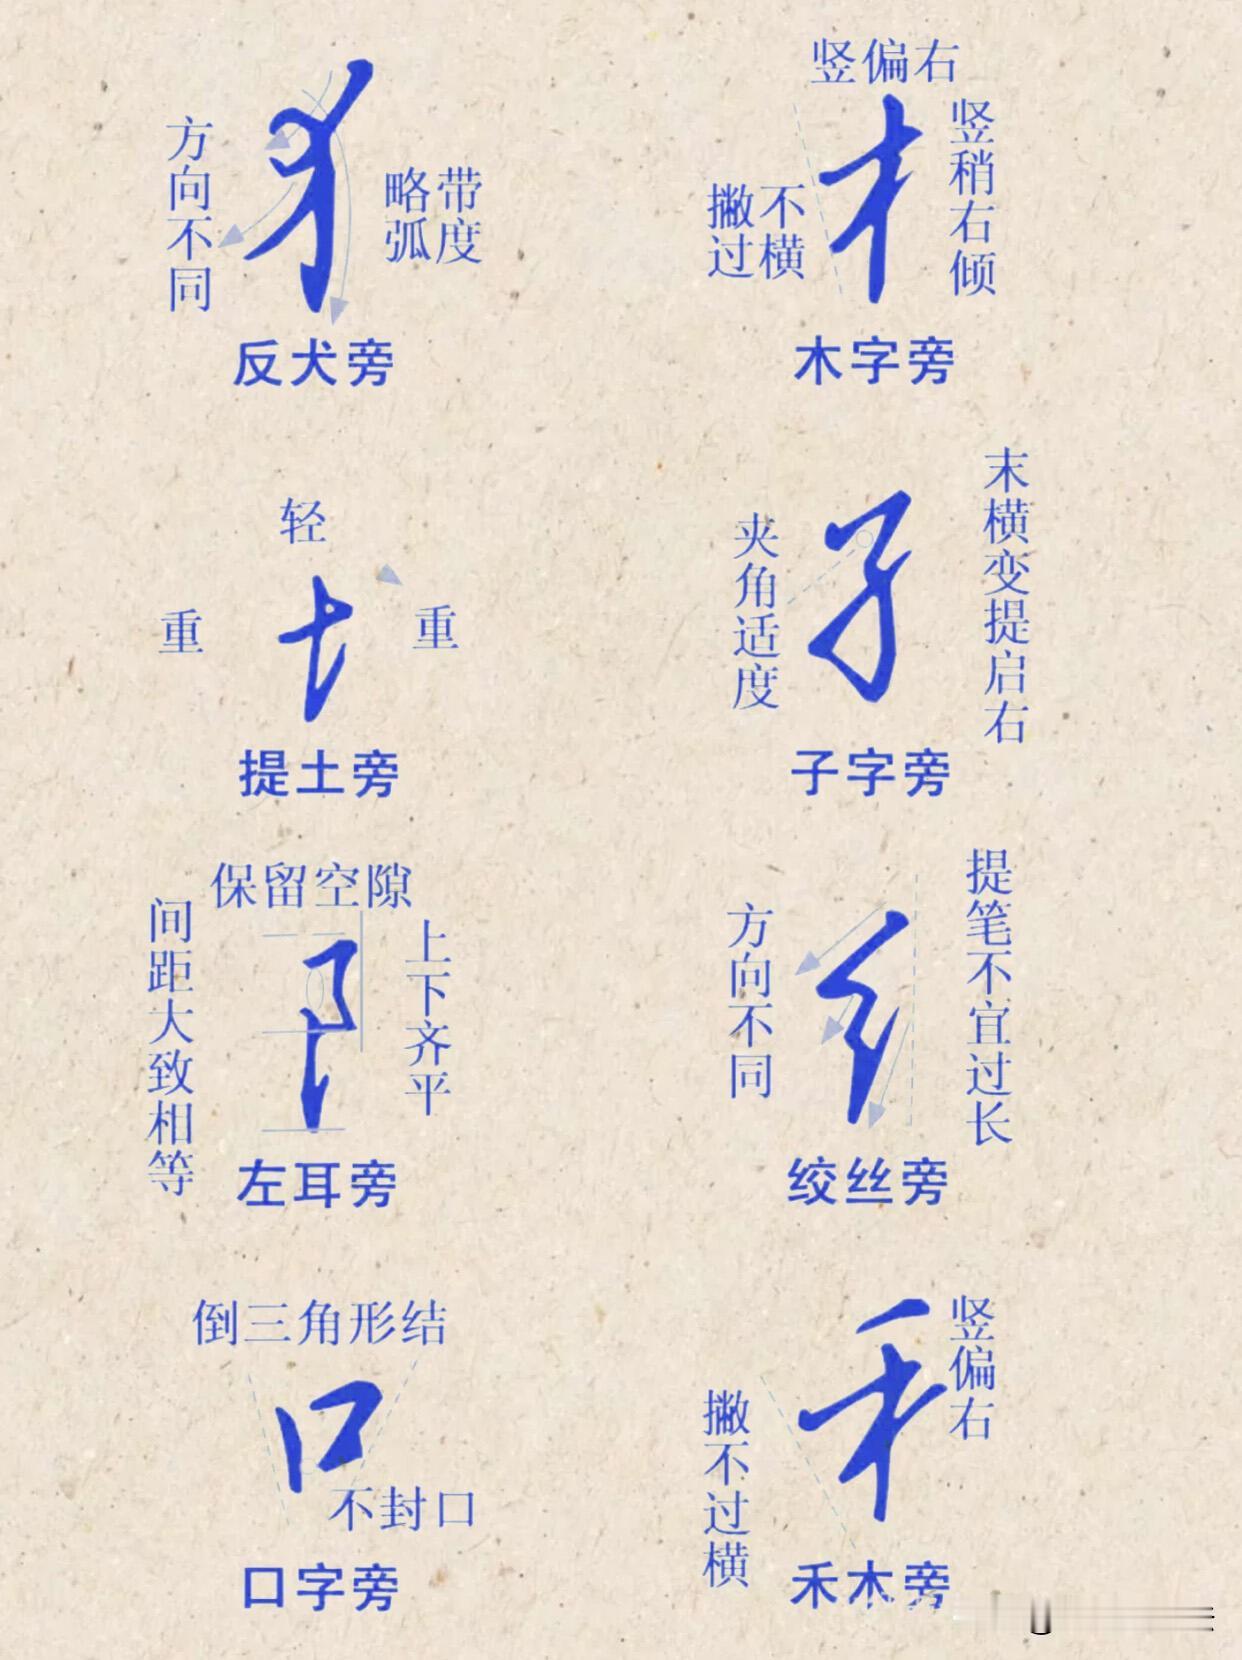 方向不同
略带
弧度
反犬旁
竖偏右
撇不
过横
竖稍右倾
木字旁
轻
重
重
提土旁
夹角适度
末横变提启右
子字旁
保留空隙
间距大致相等
上下齐平
左耳旁
方向不同
提笔不宜过长
绞丝旁
倒三角形结
不封口
口字旁
竖偏右
撇不过横
禾木旁